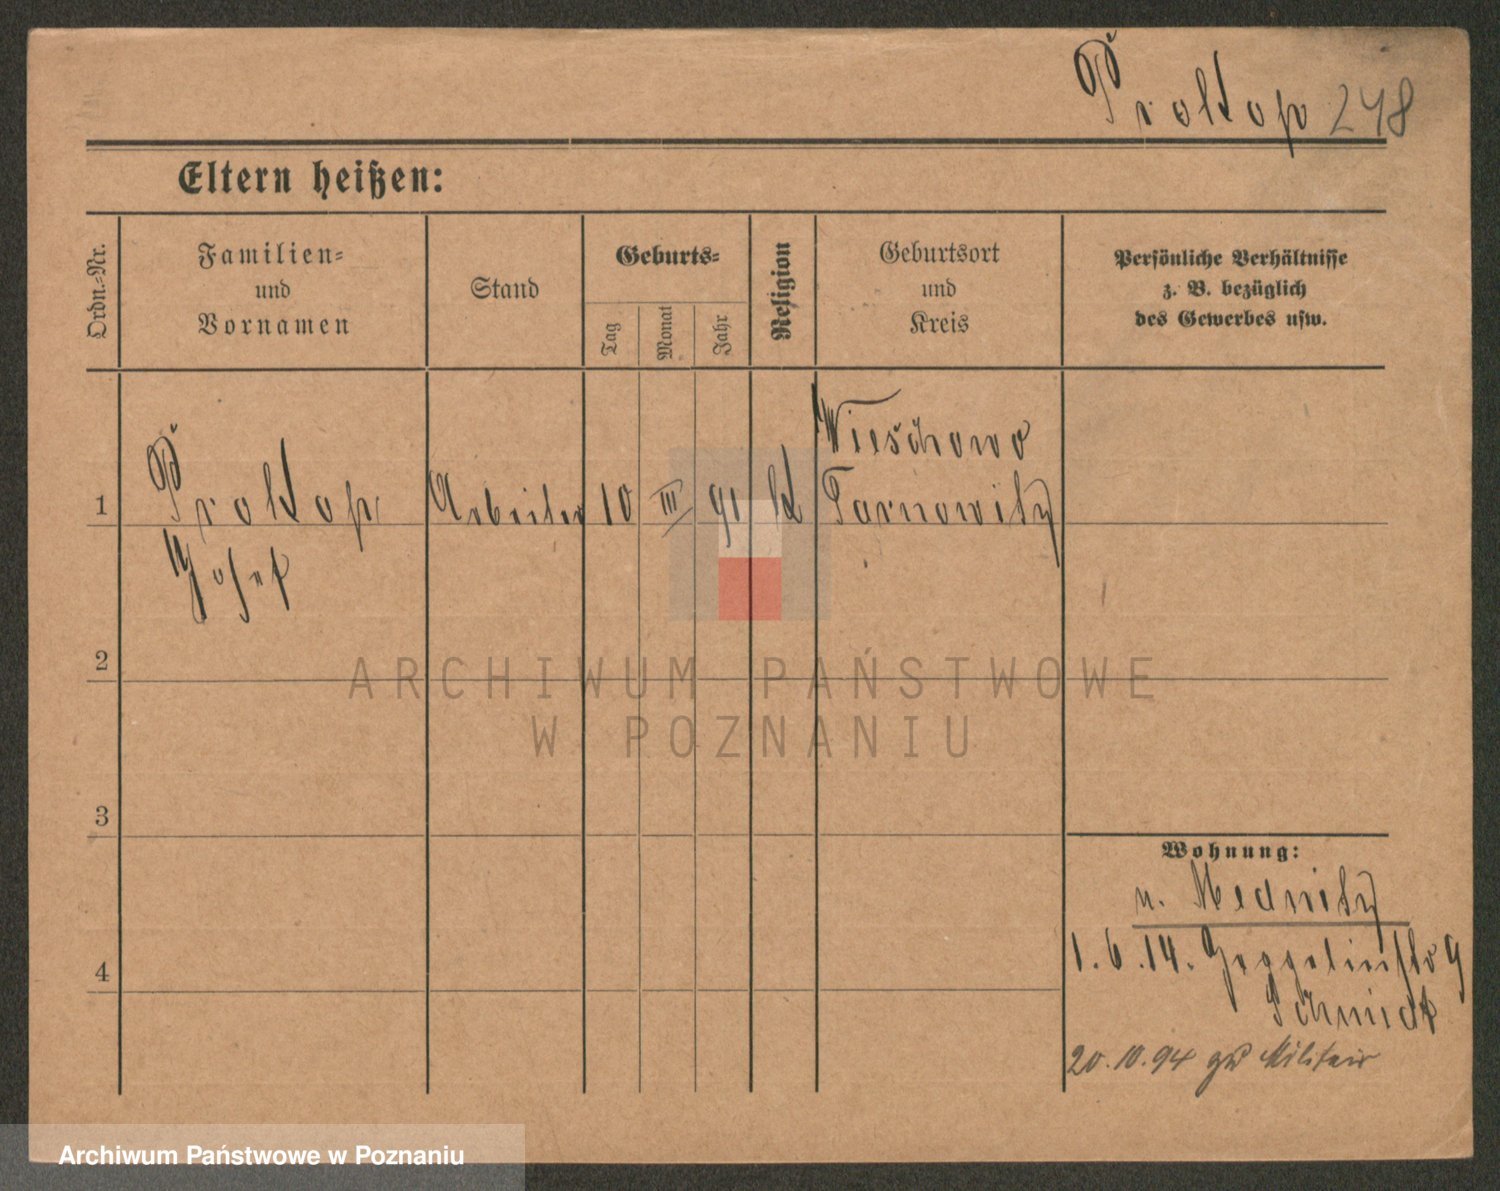 Proktop 248
Eltern heißen:
Ordn.-Nr.
Familien-
und
Vornamen
Stand
Geburts-
Tag
Monat
Jahr
Religion
Geburtsort
und
Kreis
Persönliche Verhältnisse
z. B. bezüglich
des Gewerbes usw.
1
Proktop
Josef
Arbeiter
10
III
91
k
Wieschowo
Tarnowitz
2
3
4
Wohnung:
n. Mednitz
1.6.14. 9
Schmidt
20.10.94 zu Militair
ARCHIWUM PAŃSTWOWE
W POZNANIU
Archiwum Państwowe w Poznaniu